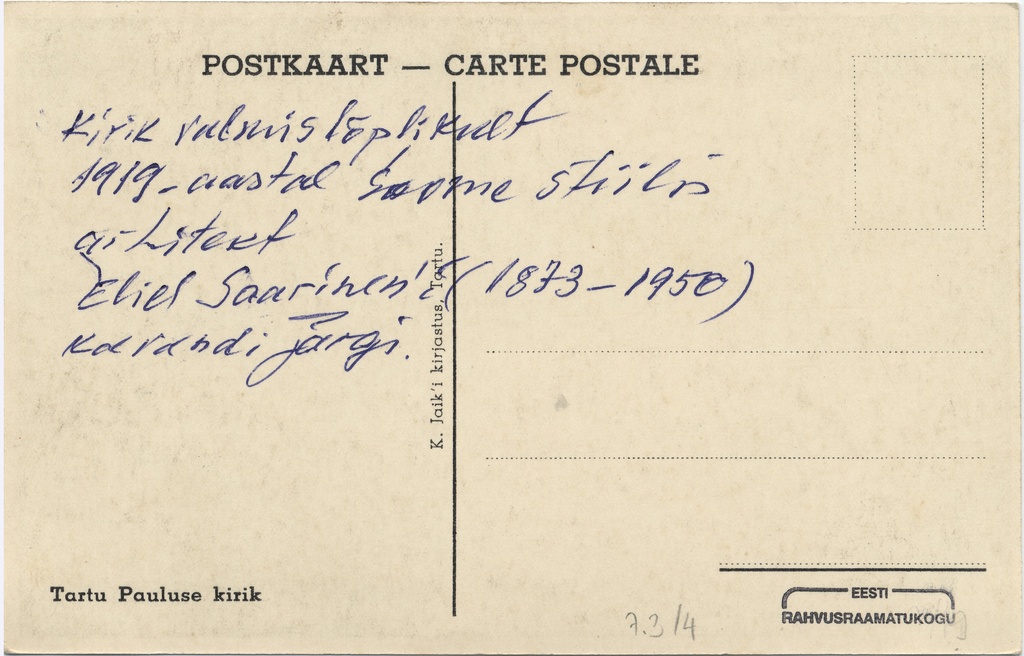 POSTKAART — CARTE POSTALE
Kirik valmis lõplikult
1919-aastal Soome stiilis
arhitekt
Eliel Saarinen'i (1873–1950)
kavandi järgi.
K. Jaik'i kirjastus, Tartu.
Tartu Pauluse kirik
7.3/4
EESTI
RAHVUSRAAMATUKOGU